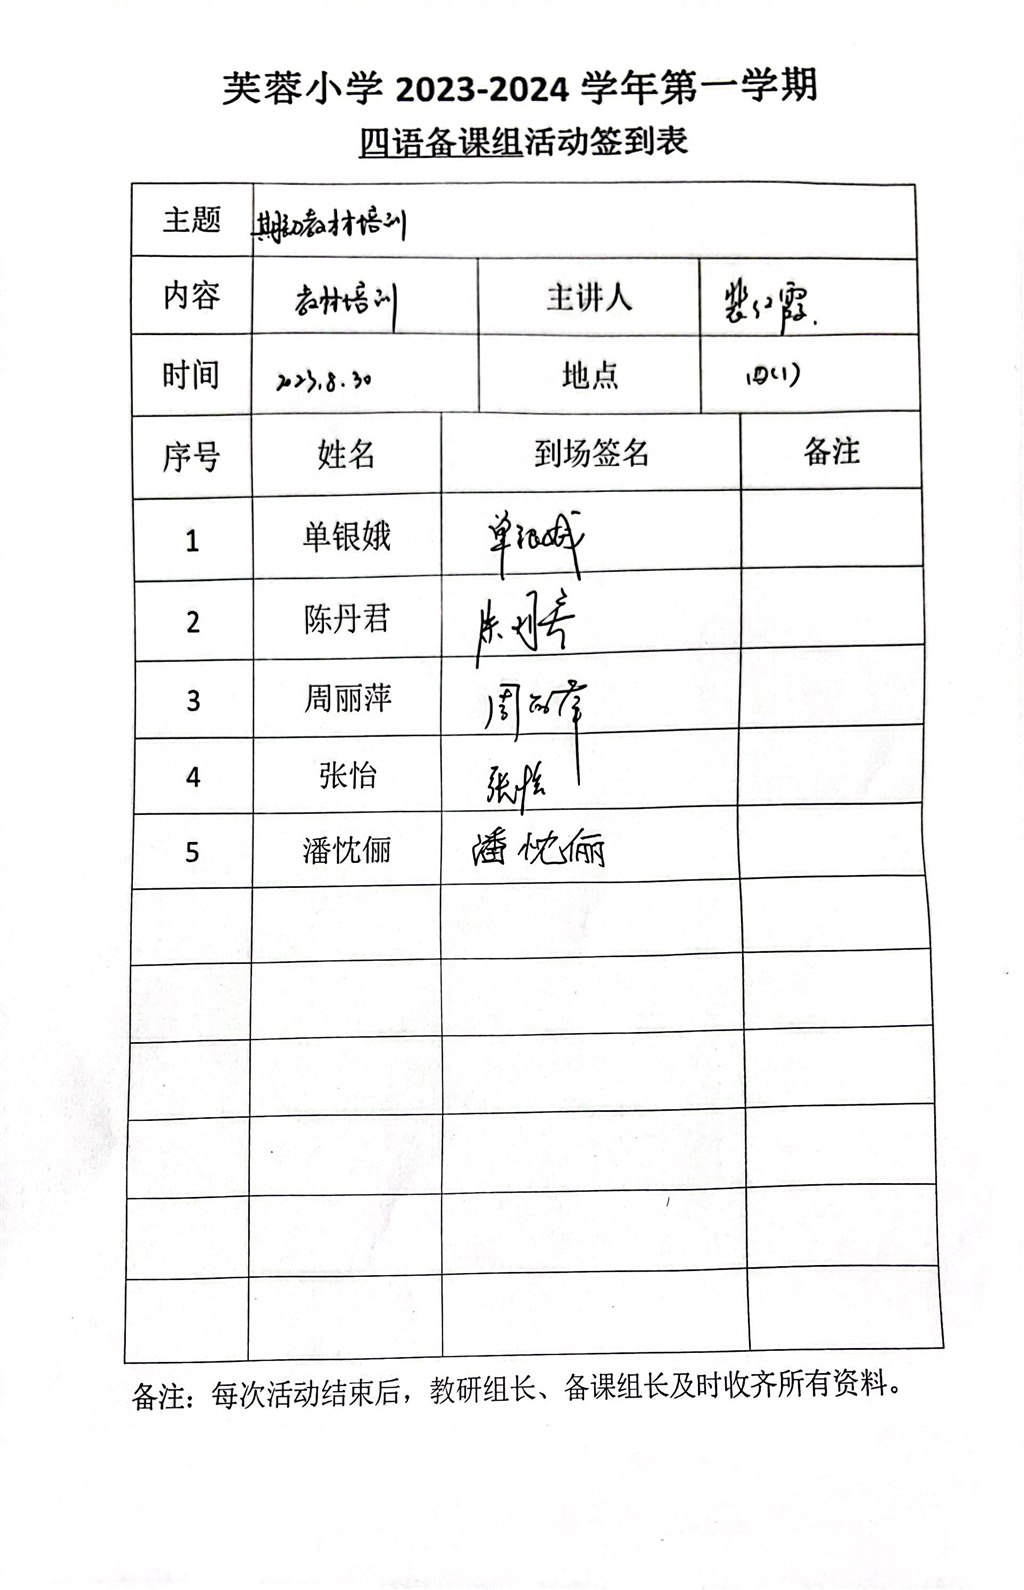 芙蓉小学 2023-2024 学年第一学期
四语备课组活动签到表
主题 期初教材培训
内容 教材培训 主讲人 裴红霞.
时间 2023.8.30 地点 四(1)
序号 姓名 到场签名 备注
1 单银娥 单银娥
2 陈丹君 陈丹君
3 周丽萍 周丽萍
4 张怡 张怡
5 潘忱俪 潘忱俪
备注：每次活动结束后，教研组长、备课组长及时收齐所有资料。